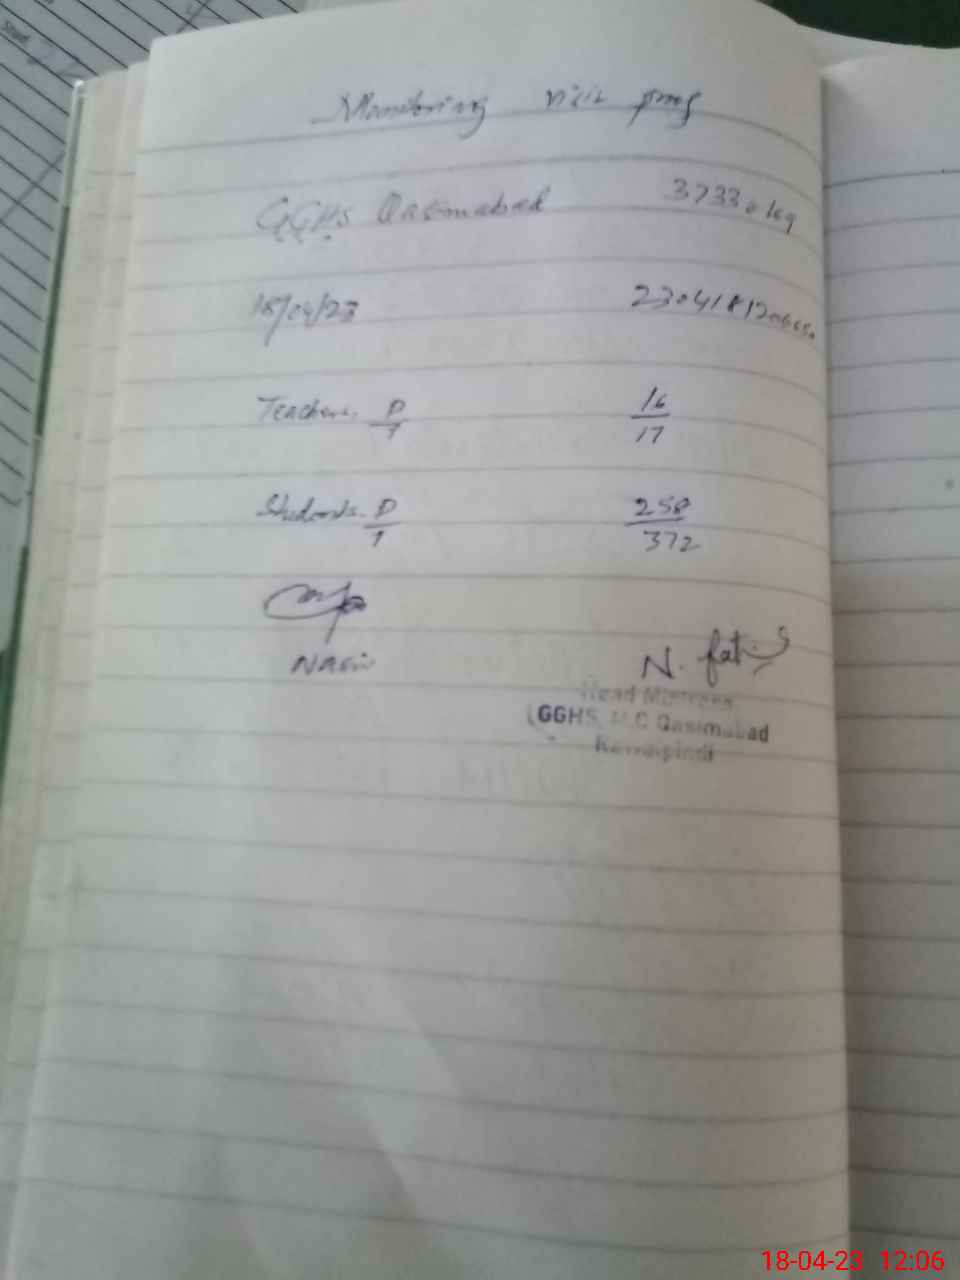 Monitoring Visit
GGHS Qasimabad 37330169
18/04/23 230418120
Teachers P/T 16/17
Students P/T 258/372
N. Fati
Head Mistress
GGHS, M.C Qasimabad
Rawalpindi
18-04-23 12:06